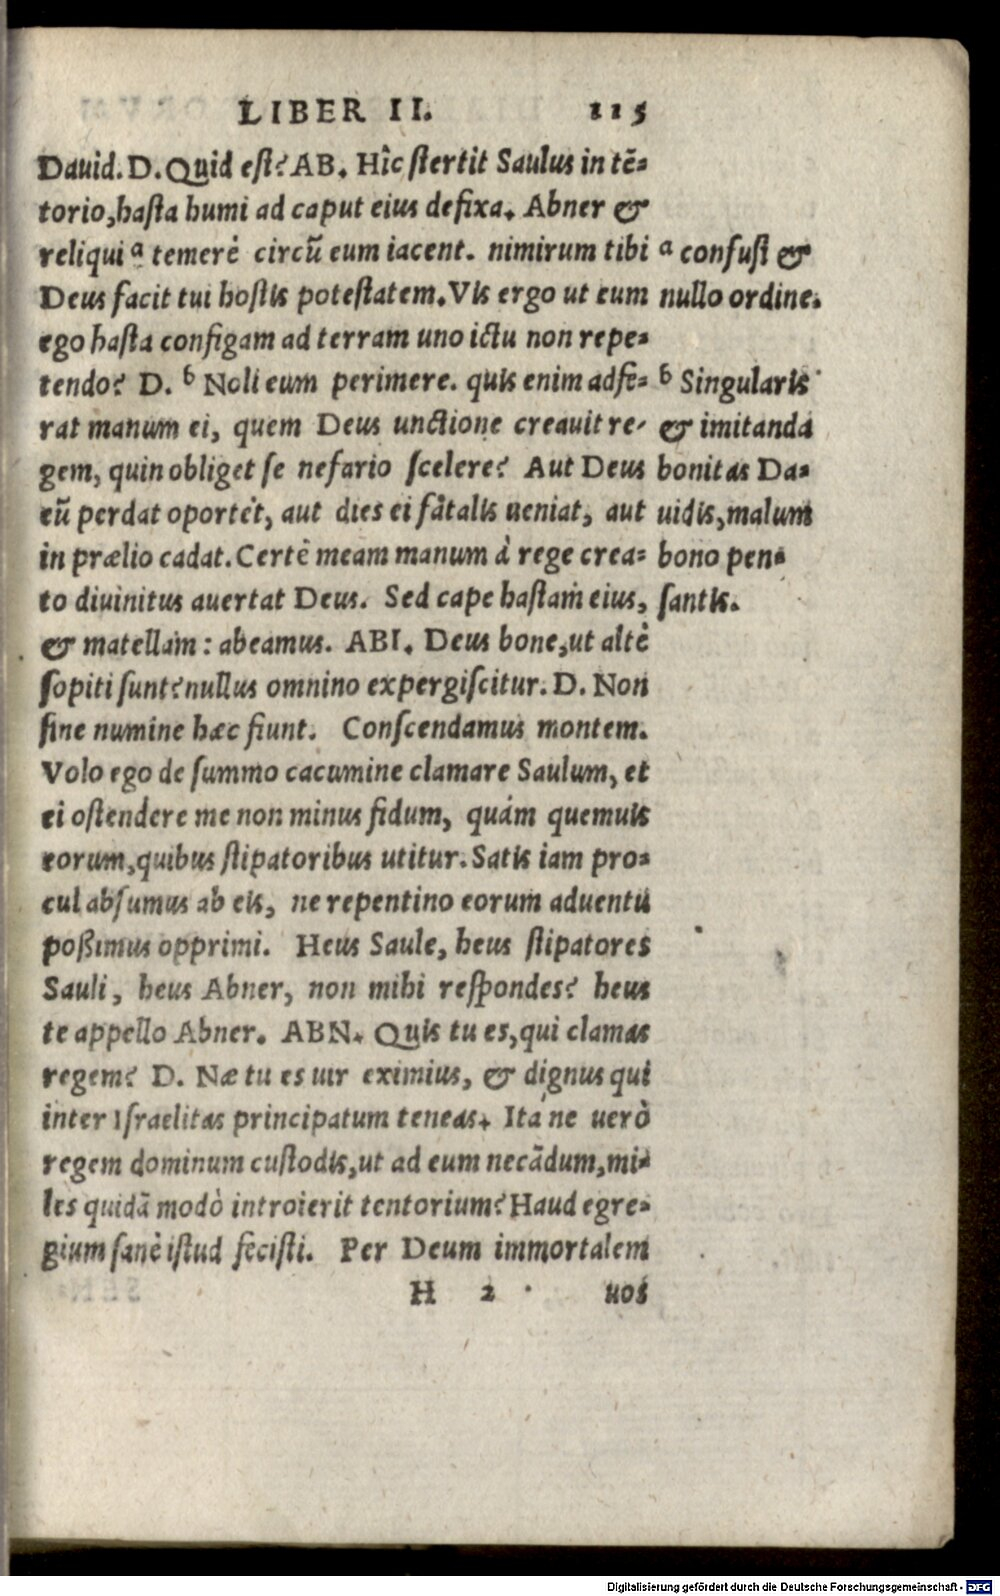 LIBER II. 115
Dauid. D. Quid est? AB. Hîc stertit Saulus in tē-
torio, hasta humi ad caput eius defixa. Abner &
reliqui ª temerè circū eum iacent. nimirum tibi
Deus facit tui hostis potestatem. Vis ergo ut eum
ego hasta configam ad terram uno ictu non repe-
tendo? D. ᵇ Noli eum perimere. quis enim adfe-
rat manum ei, quem Deus unctione creauit re-
gem, quin obliget se nefario scelere? Aut Deus
eū perdat oportet, aut dies ei fatalis ueniat, aut
in prælio cadat. Certè meam manum à rege crea-
to diuinitus auertat Deus. Sed cape hastam eius,
& matellam: abeamus. ABI. Deus bone, ut altè
sopiti sunt? nullus omnino expergiscitur. D. Non
sine numine hæc fiunt. Conscendamus montem.
Volo ego de summo cacumine clamare Saulum, et
ei ostendere me non minus fidum, quám quemuis
eorum, quibus stipatoribus utitur. Satis iam pro-
cul absumus ab eis, ne repentino eorum aduentu
poßimus opprimi. Heus Saule, heus stipatores
Sauli, heus Abner, non mihi respondes? heus
te appello Abner. ABN. Quis tu es, qui clamas
regem? D. Næ tu es uir eximius, & dignus qui
inter Israelitas principatum teneas. Ita ne uerò
regem dominum custodis, ut ad eum necādum, mi-
les quidā modò introierit tentorium? Haud egre-
gium sanè istud fecisti. Per Deum immortalem
H 2 uos
ª confusi &
nullo ordine.
ᵇ Singularis
& imitanda
bonitas Da-
uidis, malum
bono pen-
santis.
Digitalisierung gefördert durch die Deutsche Forschungsgemeinschaft - DFG